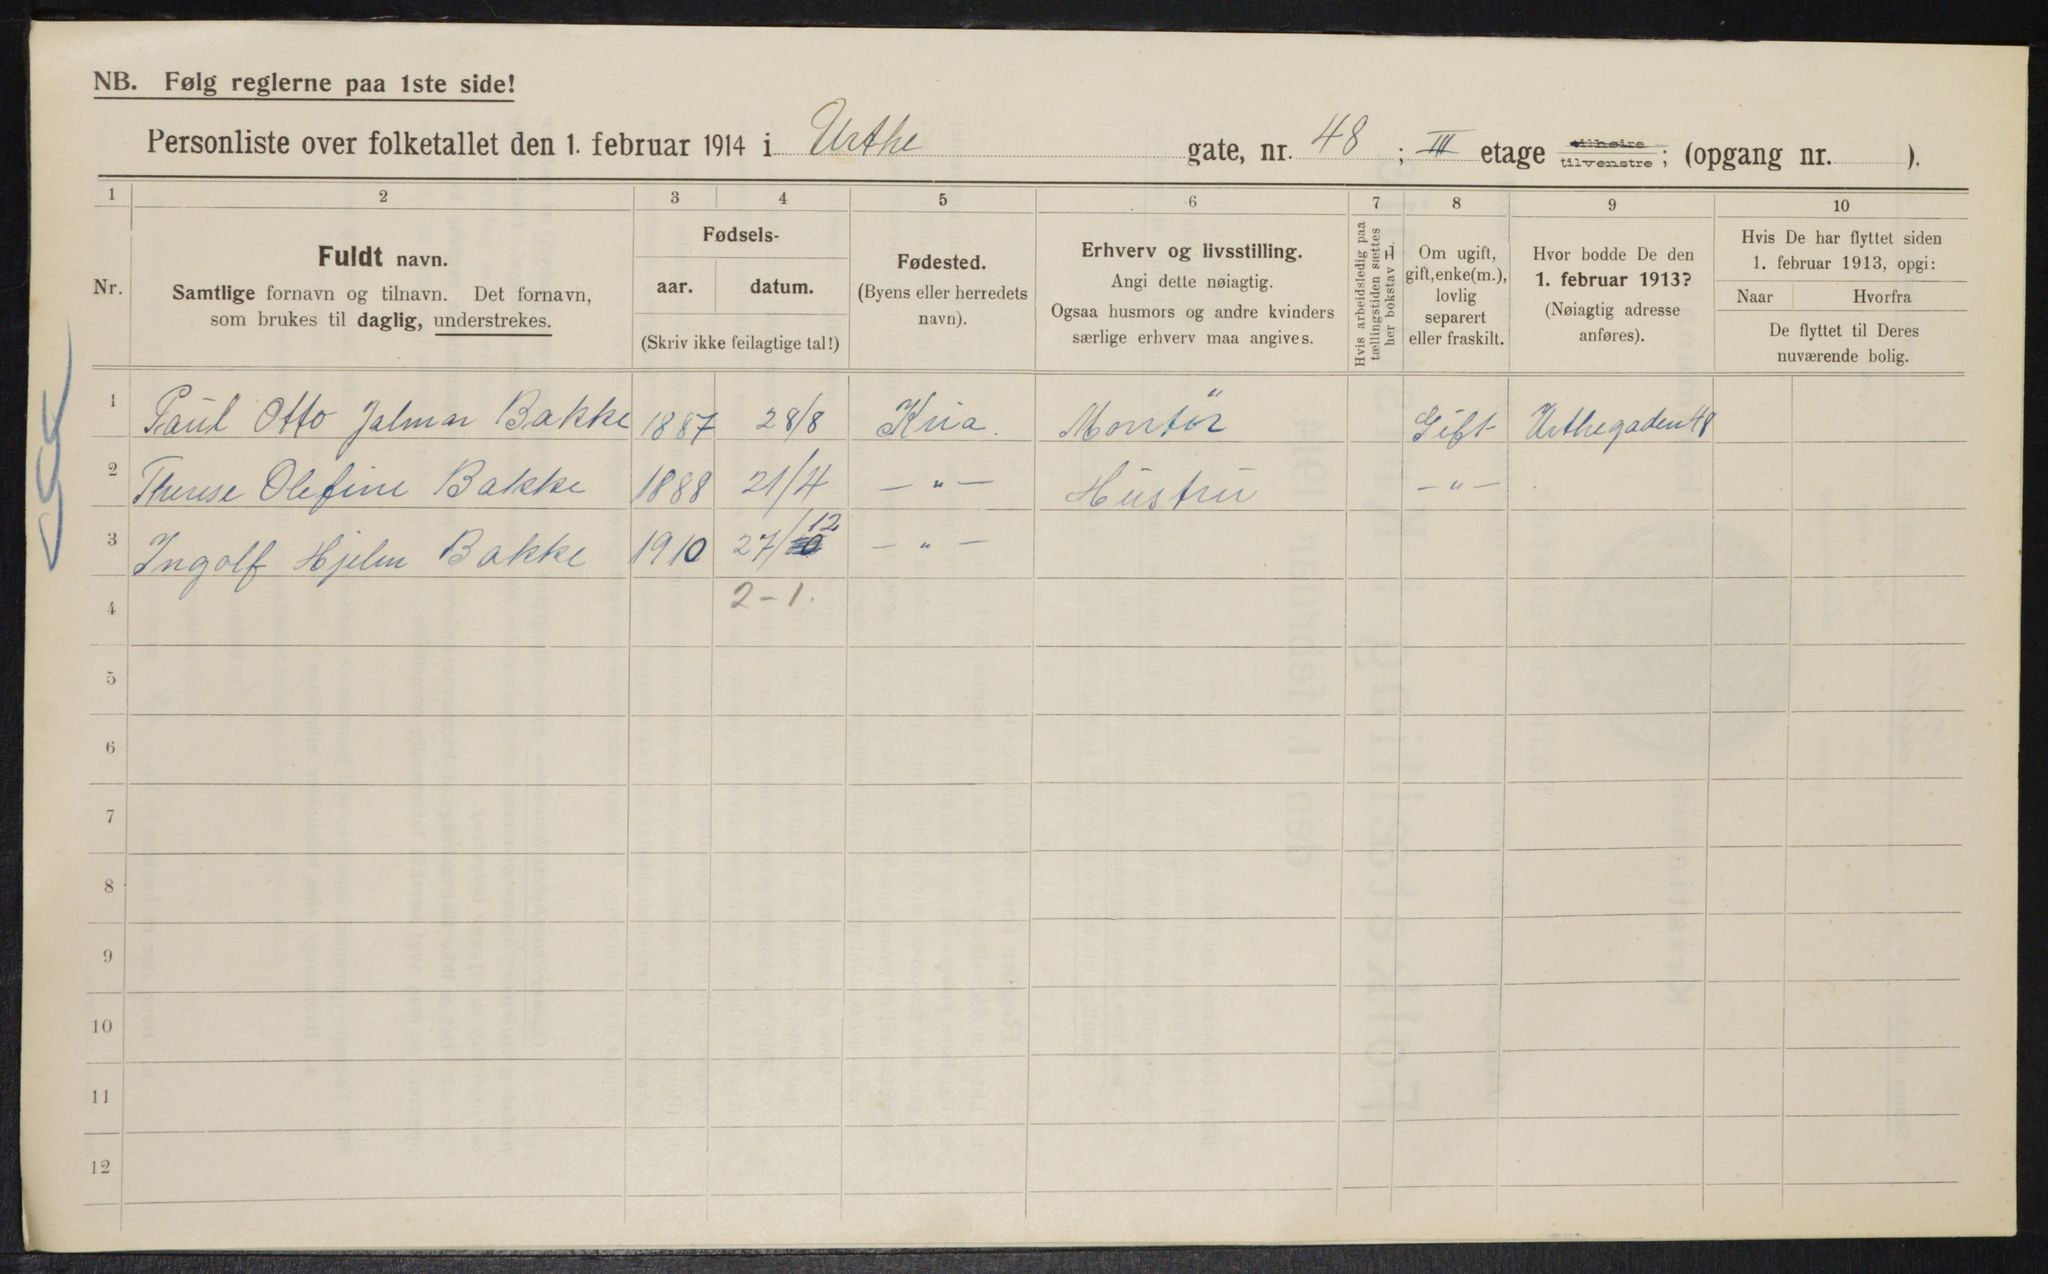 NB. Følg reglerne paa 1ste side!
Personliste over folketallet den 1. februar 1914 i Urthe gate, nr. 48 ; III etage tilhøire / tilvenstre ; (opgang nr. ).
1 2 3 4 5 6 7 8 9 10
Nr.
Fuldt navn.
Samtlige fornavn og tilnavn. Det fornavn,
som brukes til daglig, understrekes.
Fødsels-
aar. datum.
(Skriv ikke feilagtige tal!)
Fødested.
(Byens eller herredets
navn).
Erhverv og livsstilling.
Angi dette nøiagtig.
Ogsaa husmors og andre kvinders
særlige erhverv maa angives.
Hvis arbeidsledig paa
tællingstiden sættes
her bokstav L.
Om ugift,
gift, enke(m.),
lovlig
separert
eller fraskilt.
Hvor bodde De den
1. februar 1913?
(Nøiagtig adresse
anføres).
Hvis De har flyttet siden
1. februar 1913, opgi:
Naar Hvorfra
De flyttet til Deres
nuværende bolig.
1 Paul Otto Jalmar Bakke 1887 28/8 Kria. Montör Gift Urthegaden 48
2 Therese Olefine Bakke 1888 21/4 — " — Hustru — " —
3 Ingolf Hjelm Bakke 1910 27/12 — " —
4 2-1.
5
6
7
8
9
10
11
12